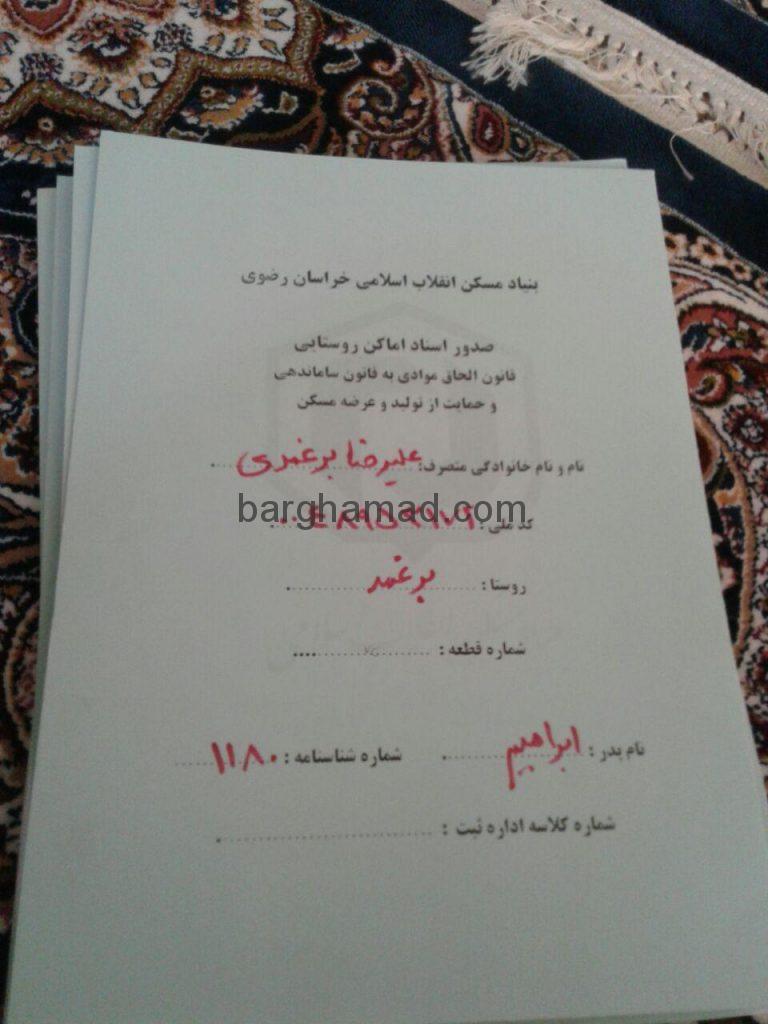 بنیاد مسکن انقلاب اسلامی خراسان رضوی
صدور اسناد اماکن روستایی
قانون الحاق موادی به قانون ساماندهی
و حمایت از تولید و عرضه مسکن
نام و نام خانوادگی متصرف: علیرضا برغمدی
barghamad.com
کد ملی :
روستا : برغمد
شماره قطعه :
نام پدر : ابراهیم شماره شناسنامه : ۱۱۸۰
شماره کلاسه اداره ثبت :